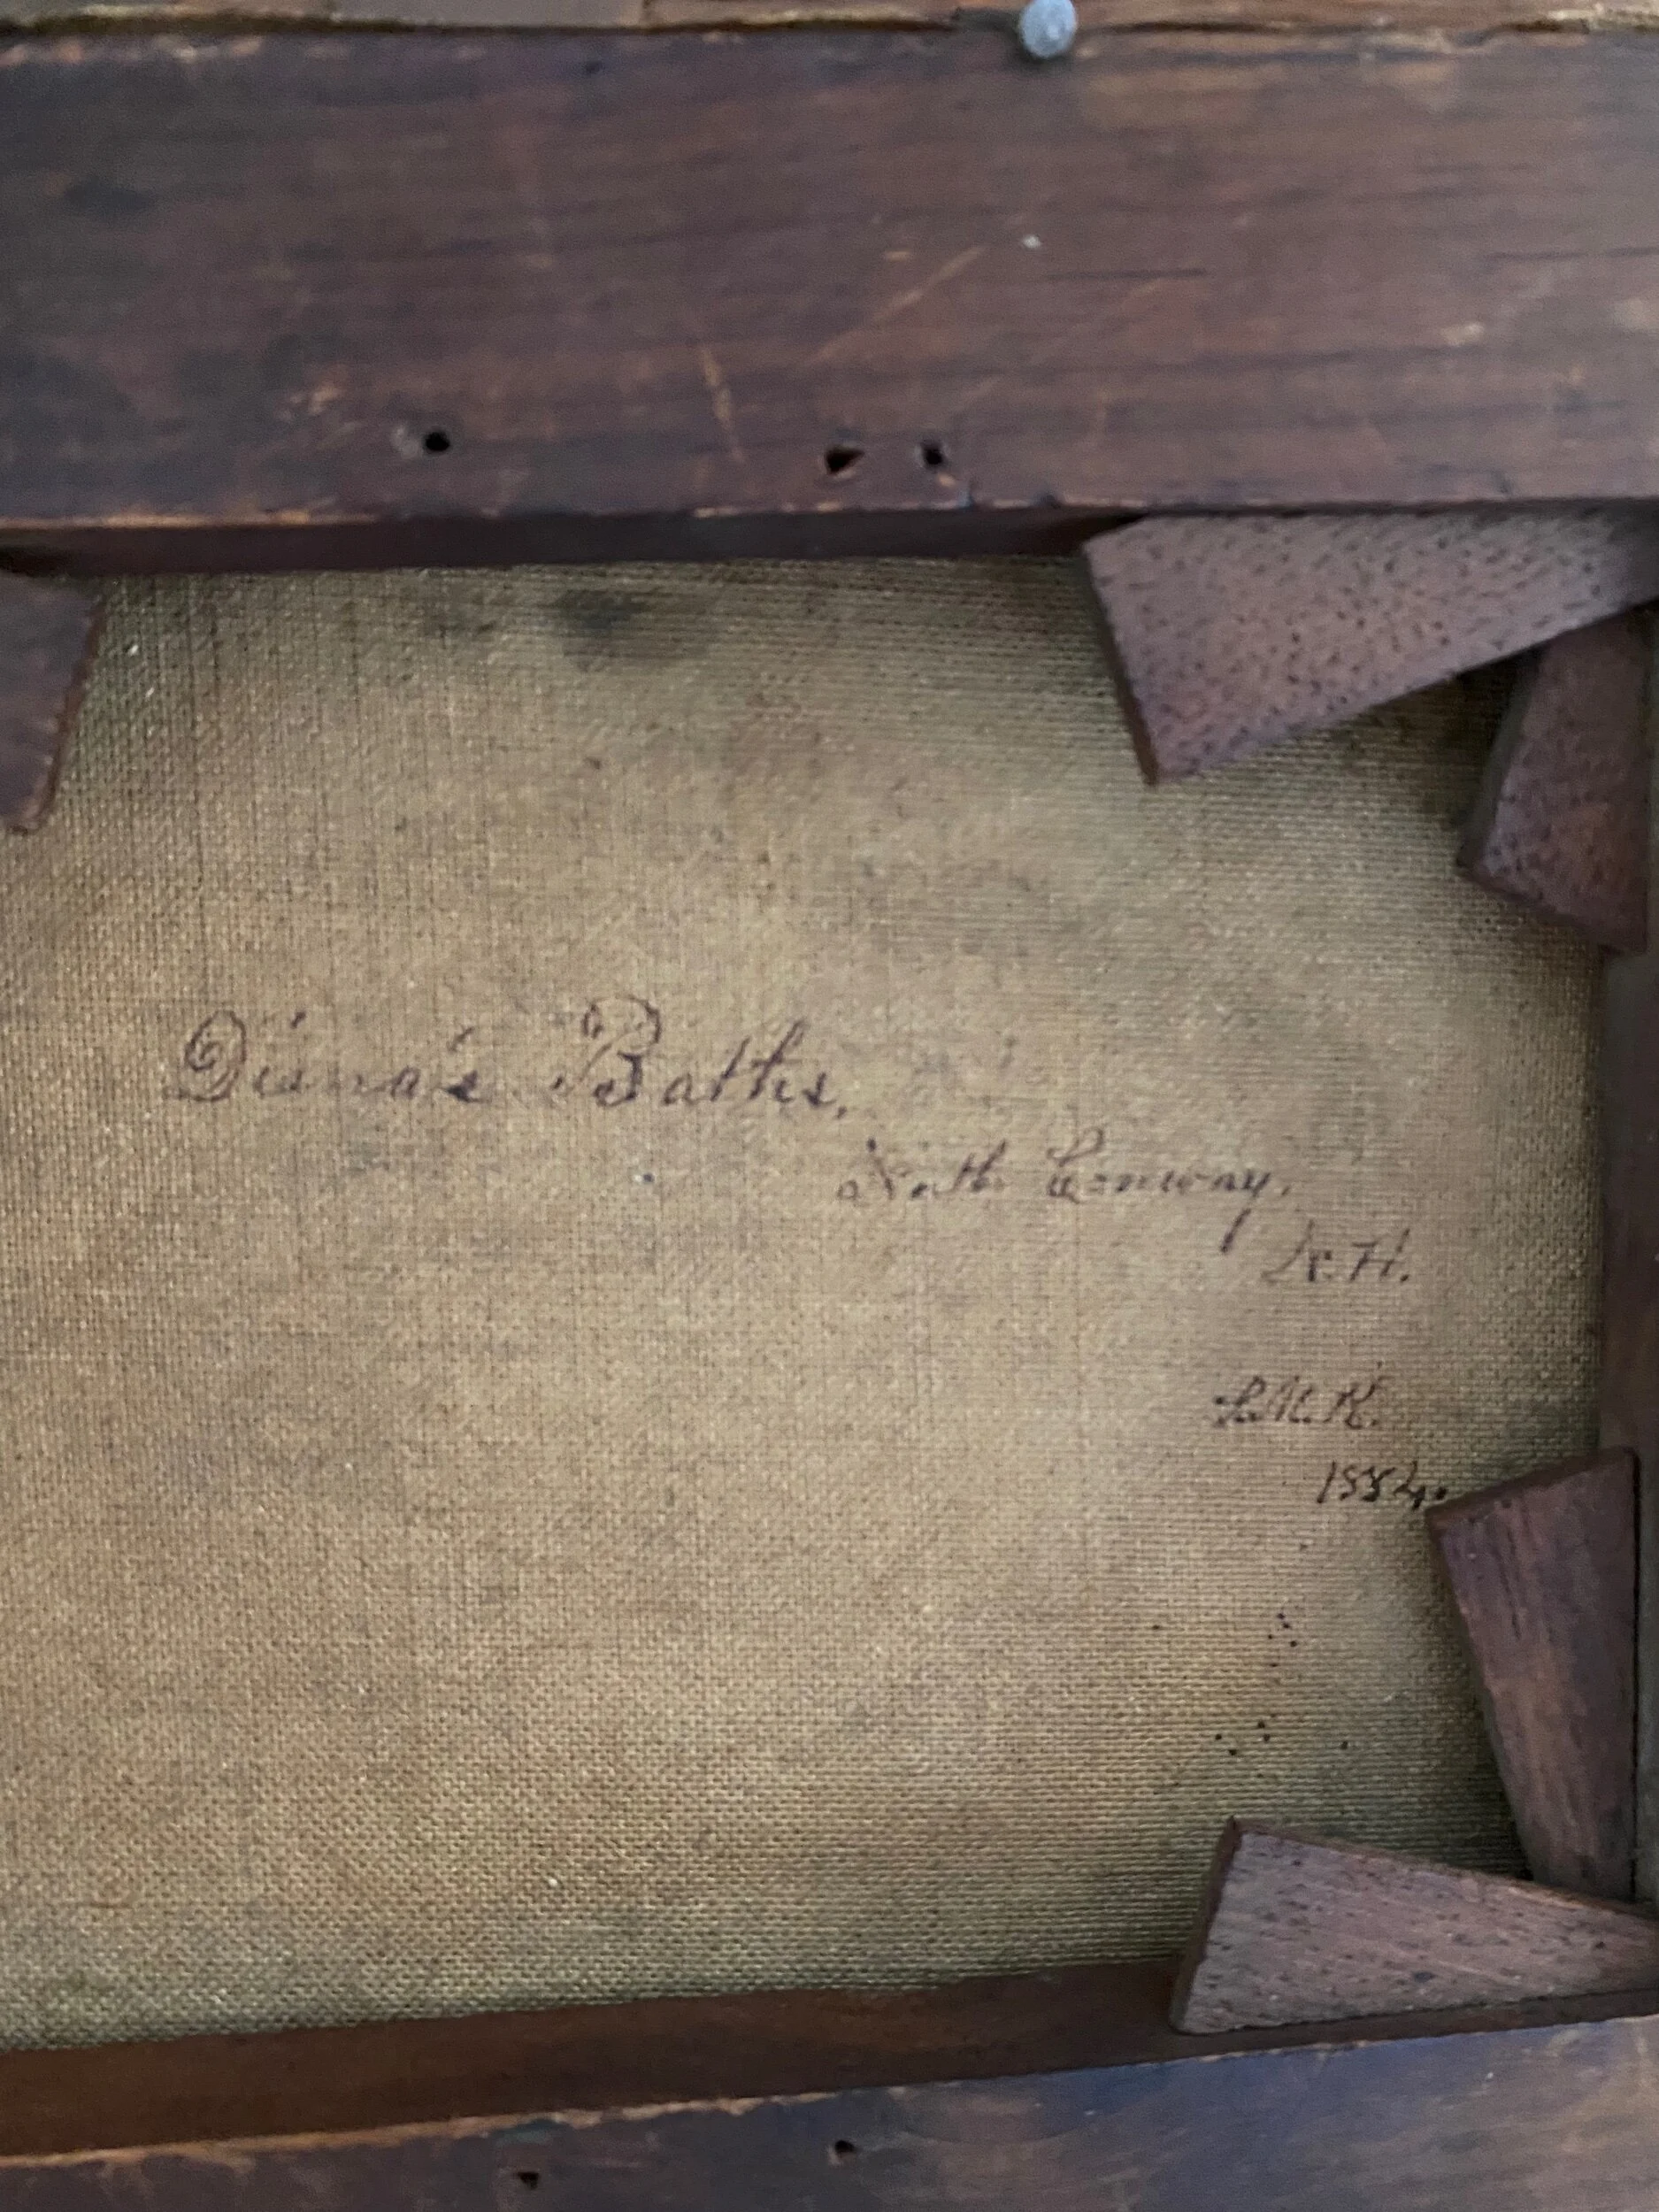 Diana's Baths,
North Conway,
N.H.
1884.